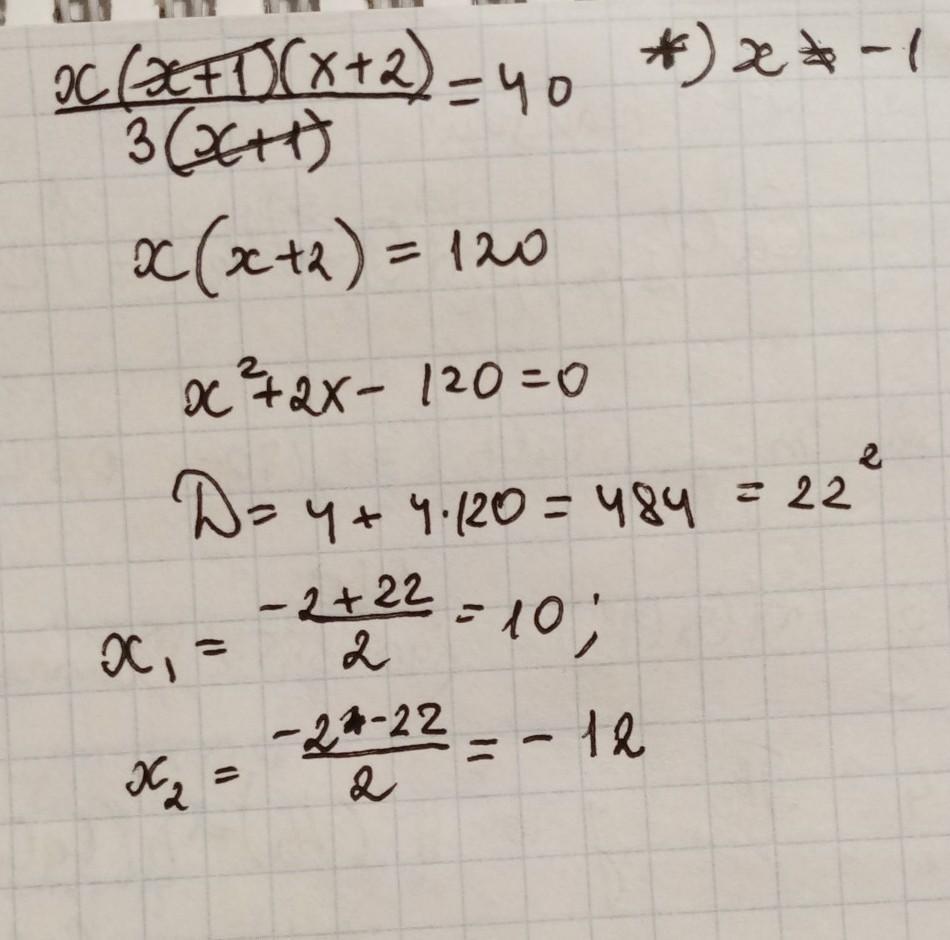 x(x+1)(x+2) / 3(x+1) = 40 *) x ≠ -1
x(x+2) = 120
x²+2x- 120 = 0
D = 4 + 4·120 = 484 = 22²
x₁ = (-2+22)/2 = 10;
x₂ = (-2-22)/2 = -12